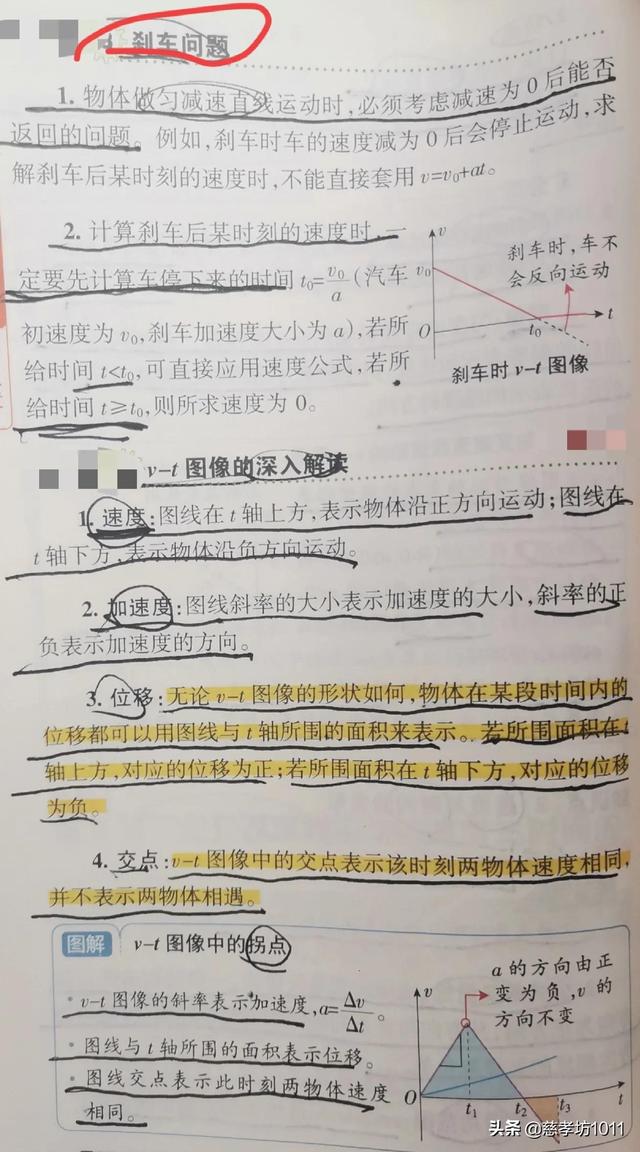 刹车问题
1. 物体做匀减速直线运动时,必须考虑减速为0后能否
返回的问题。例如,刹车时车的速度减为0后会停止运动,求
解刹车后某时刻的速度时,不能直接套用v=v₀+at。
2. 计算刹车后某时刻的速度时,一
定要先计算车停下来的时间t₀=v₀/a(汽车
初速度为v₀,刹车加速度大小为a),若所
给时间t<t₀,可直接应用速度公式,若所
给时间t≥t₀,则所求速度为0。
v
v₀
刹车时,车不
会反向运动
O
t₀
t
刹车时v-t图像
v-t图像的深入解读
1. 速度:图线在t轴上方,表示物体沿正方向运动;图线在
t轴下方,表示物体沿负方向运动。
2. 加速度:图线斜率的大小表示加速度的大小,斜率的正
负表示加速度的方向。
3. 位移:无论v-t图像的形状如何,物体在某段时间内的
位移都可以用图线与t轴所围的面积来表示。若所围面积在t
轴上方,对应的位移为正;若所围面积在t轴下方,对应的位移
为负。
4. 交点:v-t图像中的交点表示该时刻两物体速度相同,
并不表示两物体相遇。
图解 v-t图像中的拐点
·v-t图像的斜率表示加速度,a=Δv/Δt。
·图线与t轴所围的面积表示位移。
·图线交点表示此时刻两物体速度
相同。
a的方向由正
变为负,v的
方向不变
v
O
t₁
t₂
t₃
t
头条 @慈孝坊1011